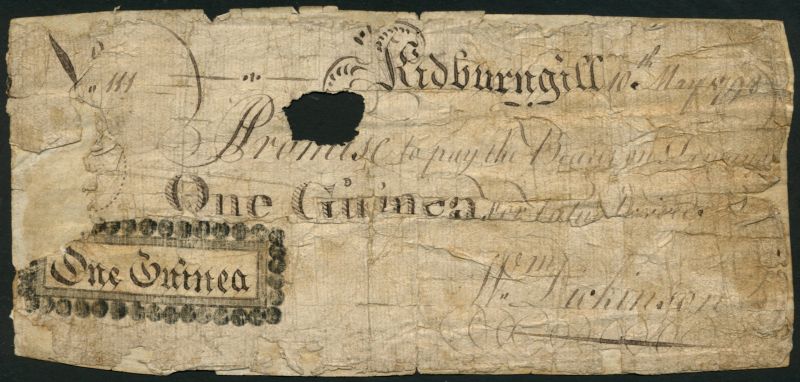 N
111 Kidburngill 10th May 1798
I Promise to pay the Bearer on Demand
One Guinea for Value Received
One Guinea
Wm Dickinson